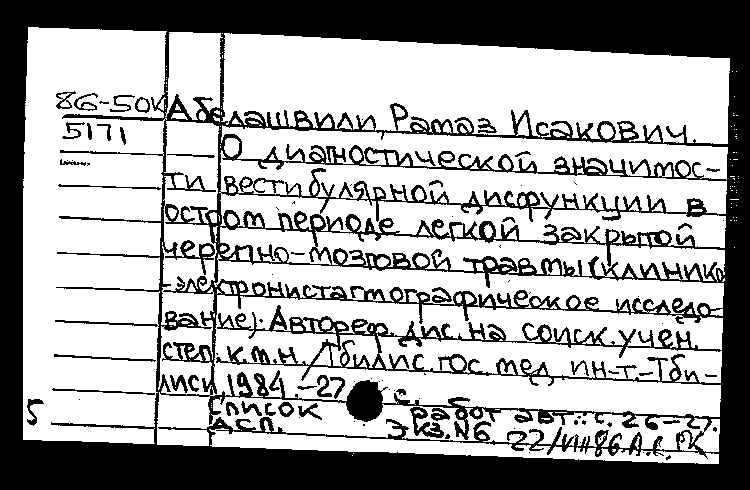 86-50к Абелашвили, Рамаз Исакович.
5171
О диагностической значимос-
ти вестибулярной дисфункции в
остром периоде легкой закрытой
черепно-мозговой травмы (клинико
-электронистагмографическое исследо-
вание): Автореф. дис. на соиск. учен.
степ. к.м.н. / Тбилис. гос. мед. ин-т.-Тби-
лиси, 1984.-27 с.
5 Список работ авт.: с. 26-27.
ДСП. Экз. №6. 22/VII 86 А.С.